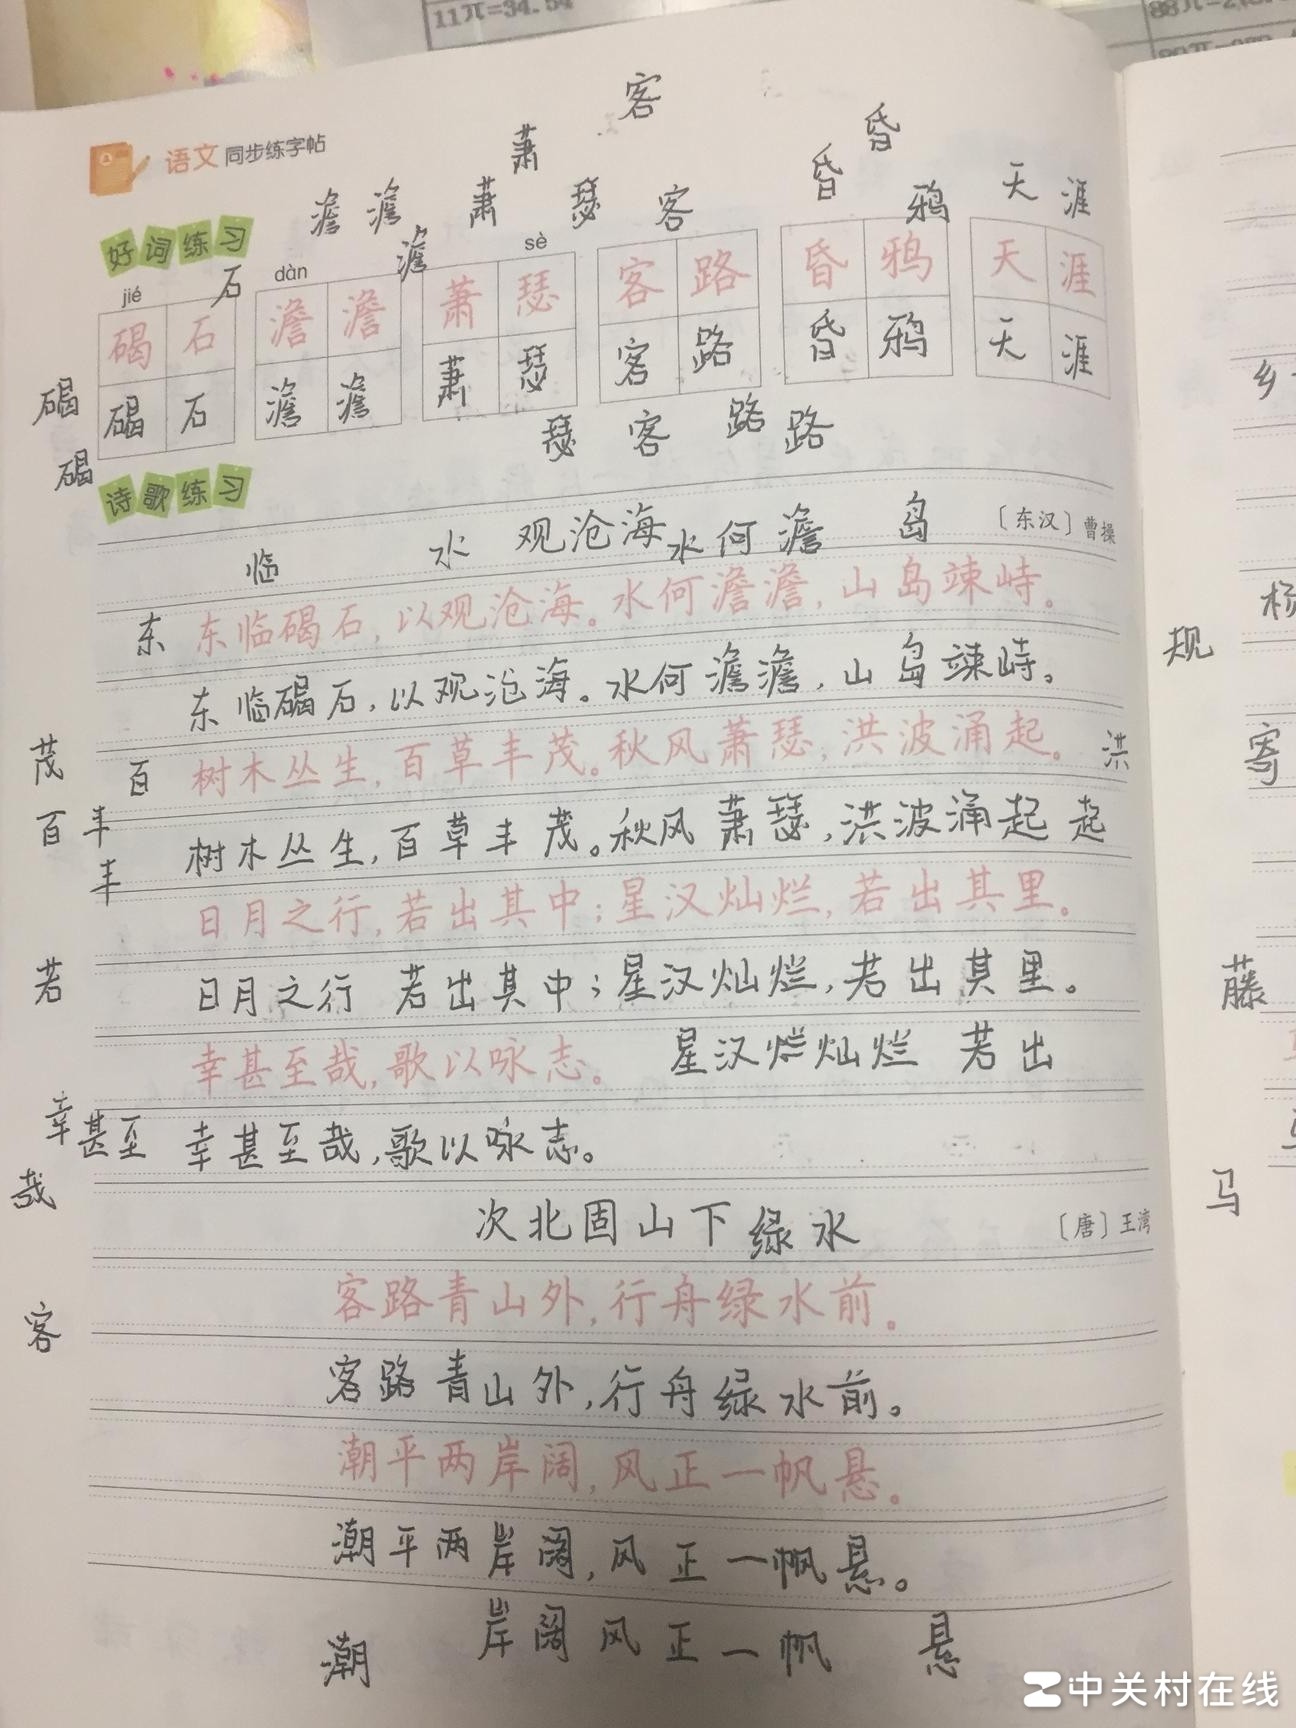 11π=34.54
客
语文 同步练字帖
萧
昏
昏
澹 澹 萧 瑟 客 鸦 天 涯
好词练习
石 澹
jié dàn sè
碣 石 澹 澹 萧 瑟 客 路 昏 鸦 天 涯
碣 碣 石 澹 澹 萧 瑟 客 路 昏 鸦 天 涯
碣 瑟 客 路 路
诗歌练习
临 水 观沧海 水何澹 岛 〔东汉〕曹操
东 东临碣石，以观沧海。水何澹澹，山岛竦峙。
规
东临碣石，以观沧海。水何澹澹，山岛竦峙。
茂 百 树木丛生，百草丰茂。秋风萧瑟，洪波涌起。 洪
寄
百 丰 树木丛生，百草丰茂。秋风萧瑟，洪波涌起 起
丰
日月之行，若出其中；星汉灿烂，若出其里。
若 日月之行 若出其中；星汉灿烂，若出其里。
藤
幸甚至哉，歌以咏志。 星汉烂灿烂 若出
幸甚至 幸甚至哉，歌以咏志。
哉
马
次北固山下 绿水 〔唐〕王湾
客路青山外，行舟绿水前。
客
客路青山外，行舟绿水前。
潮平两岸阔，风正一帆悬。
潮平两岸阔，风正一帆悬。
潮 岸阔风正一帆 悬
中关村在线